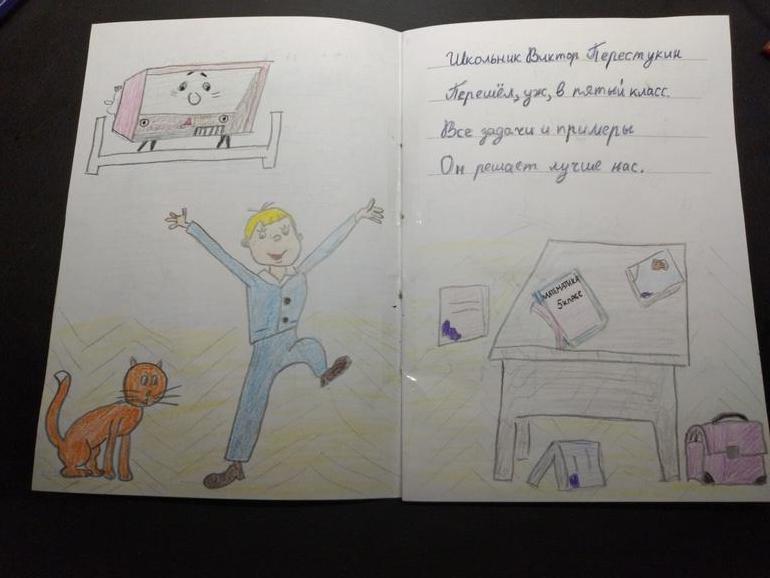 Школьник Виктор Перестукин
Перешёл, уж, в пятый класс.
Все задачи и примеры
Он решает лучше нас.
МАТЕМАТИКА
5 класс